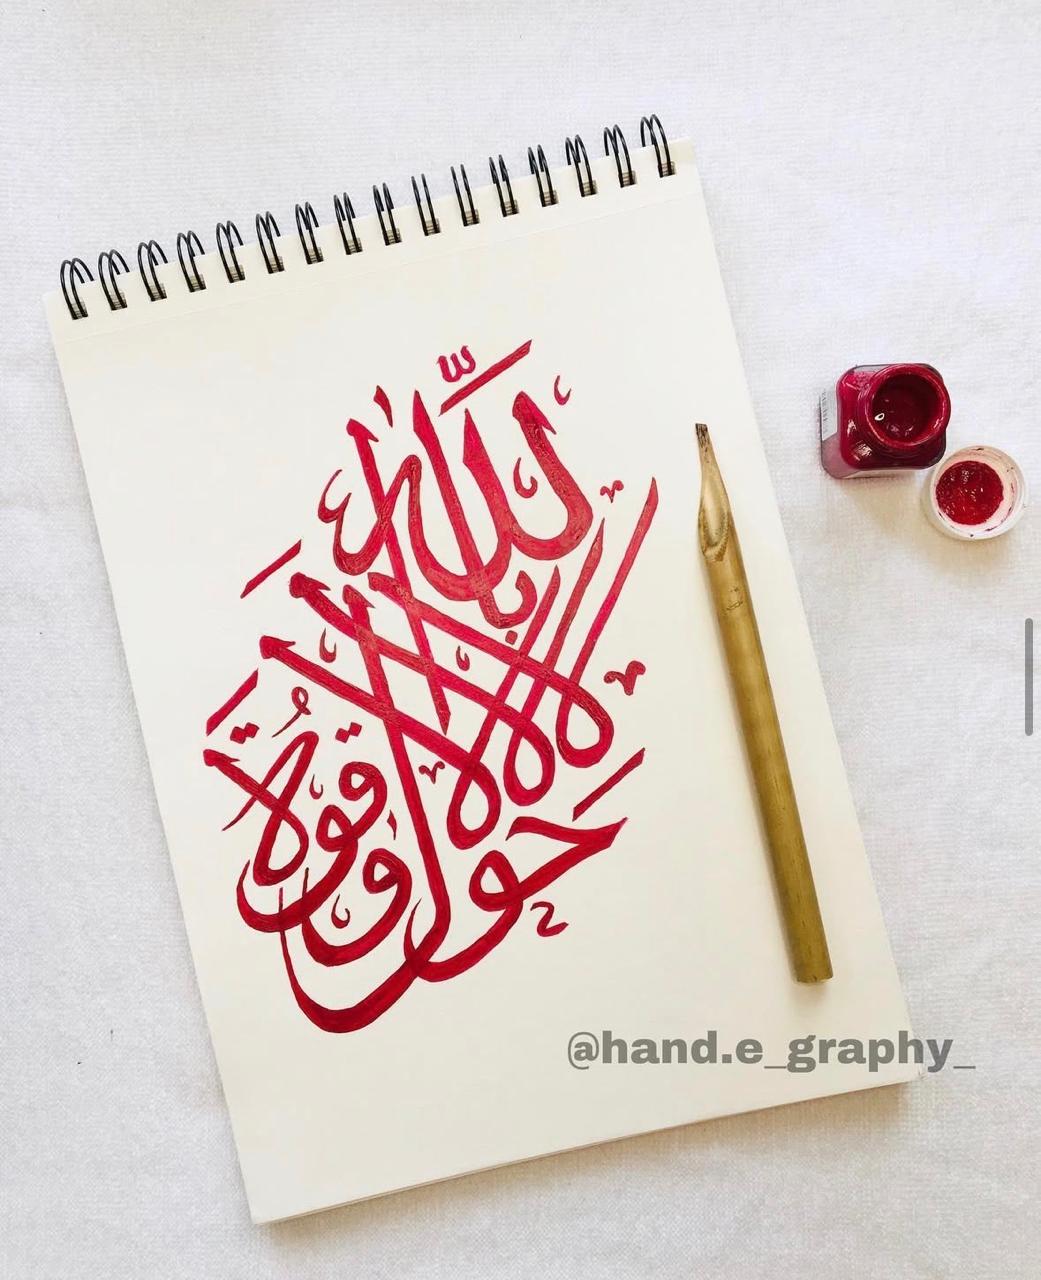 لا حول ولا قوة إلا بالله
@hand.e_graphy_